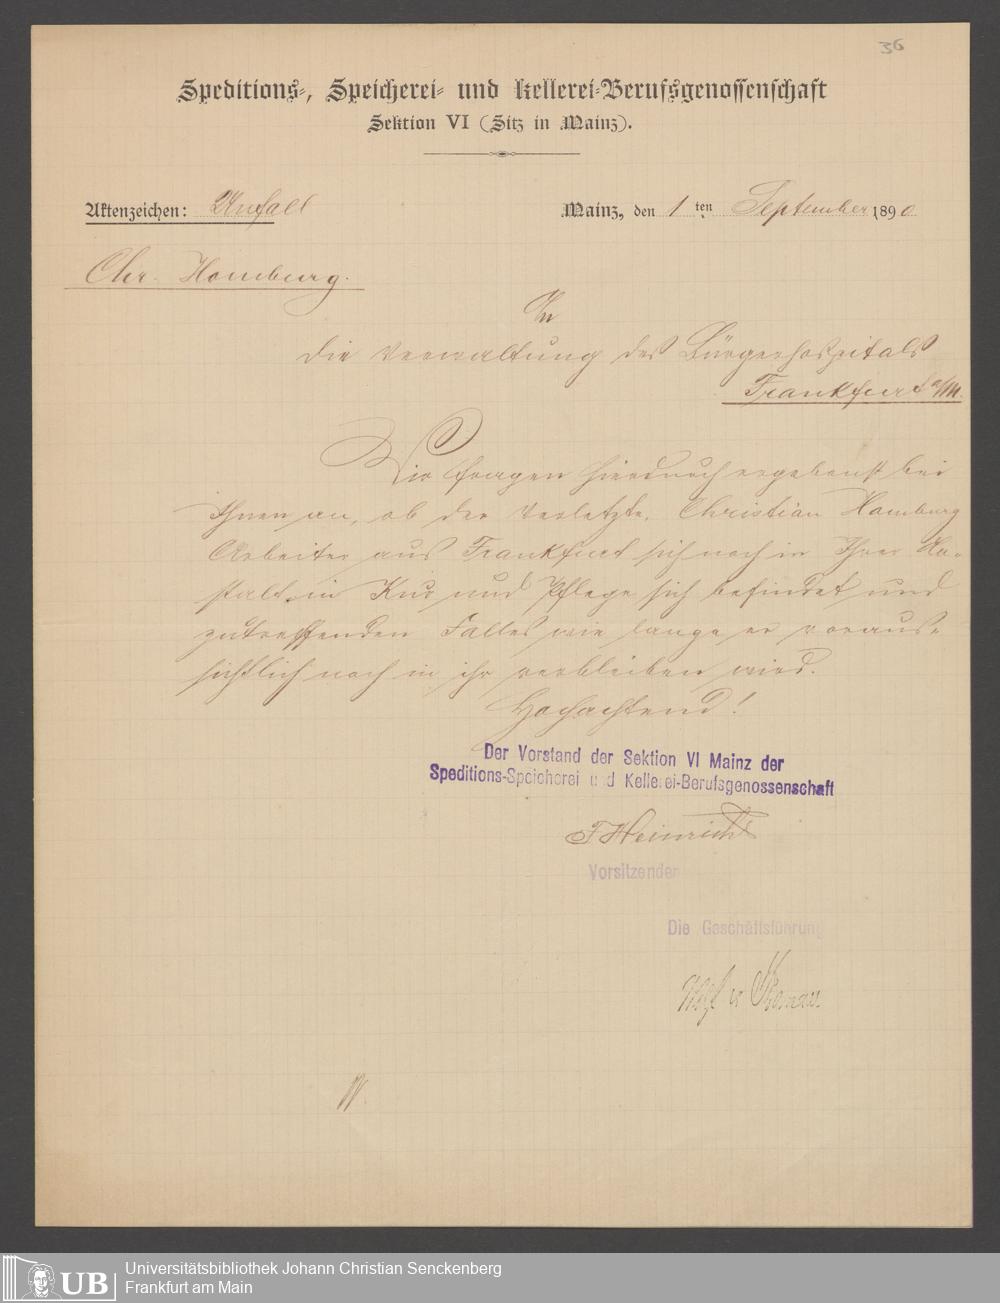 36
Speditions-, Speicherei- und Kellerei-Berufsgenossenschaft
Sektion VI (Sitz in Mainz).
Aktenzeichen: Unfall
Mainz, den 1 ten September 1890
Chr. Homburg.
An
die Verwaltung des Bürgerhospitals
Frankfurt a/M.
Wir fragen hierdurch ergebenst bei
Ihnen an, ob der Verletzte, Christian Homburg
Arbeiter aus Frankfurt sich noch in Ihrer An-
stalt in Kur und Pflege sich befindet und
zutreffenden Falles wie lange er voraus-
sichtlich noch in ihr verbleiben wird.
Hochachtend!
Der Vorstand der Sektion VI Mainz der
Speditions-Speicherei und Kellerei-Berufsgenossenschaft
F Heinrich
Vorsitzender
Die Geschäftsführung
UB
Universitätsbibliothek Johann Christian Senckenberg
Frankfurt am Main